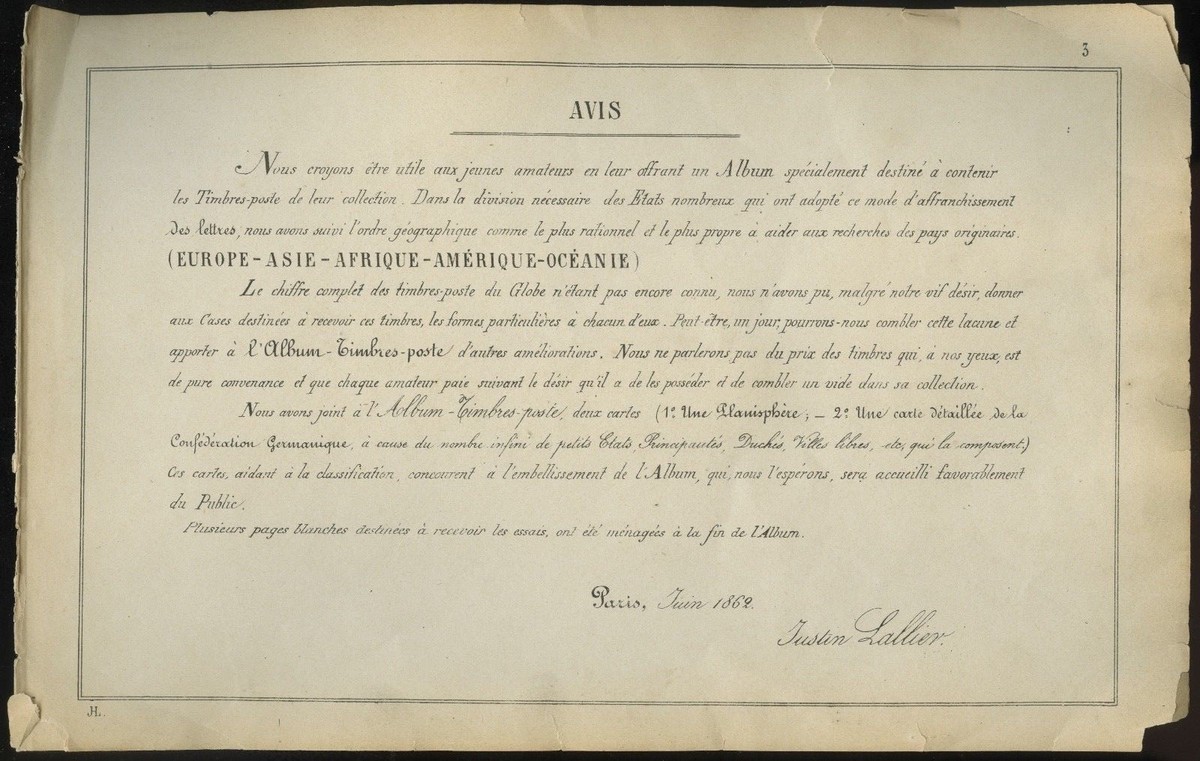 3
AVIS
Nous croyons être utile aux jeunes amateurs en leur offrant un Album spécialement destiné à contenir
les Timbres-poste de leur collection. Dans la division nécessaire des Etats nombreux qui ont adopté ce mode d'affranchissement
des lettres, nous avons suivi l'ordre géographique comme le plus rationnel et le plus propre à aider aux recherches des pays originaires.
(EUROPE-ASIE-AFRIQUE-AMÉRIQUE-OCÉANIE)
Le chiffre complet des timbres-poste du Globe n'étant pas encore connu, nous n'avons pu, malgré notre vif désir, donner
aux Cases destinées à recevoir ces timbres, les formes particulières à chacun d'eux. Peut-être, un jour, pourrons-nous combler cette lacune et
apporter à l'Album-Timbres-poste d'autres améliorations. Nous ne parlerons pas du prix des timbres qui, à nos yeux, est
de pure convenance et que chaque amateur paie suivant le désir qu'il a de les posséder et de combler un vide dans sa collection.
Nous avons joint à l'Album-Timbres-poste, deux cartes (1º Une Planisphère; — 2º Une carte détaillée de la
Confédération Germanique, à cause du nombre infini de petits Etats, Principautés, Duchés, Villes libres, etc, qui la composent.)
Ces cartes, aidant à la classification, concourent à l'embellissement de l'Album, qui, nous l'espérons, sera accueilli favorablement
du Public.
Plusieurs pages blanches destinées à recevoir les essais, ont été ménagées à la fin de l'Album.
Paris, Juin 1862.
Justin Lallier.
JL.